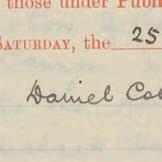 those under Publi
SATURDAY, the 25
Daniel Co